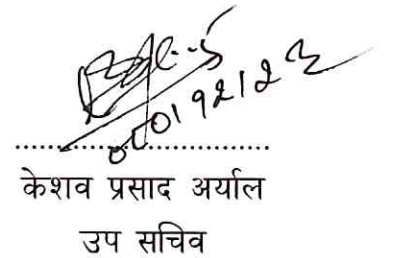 केशव प्रसाद अर्याल
उप सचिव